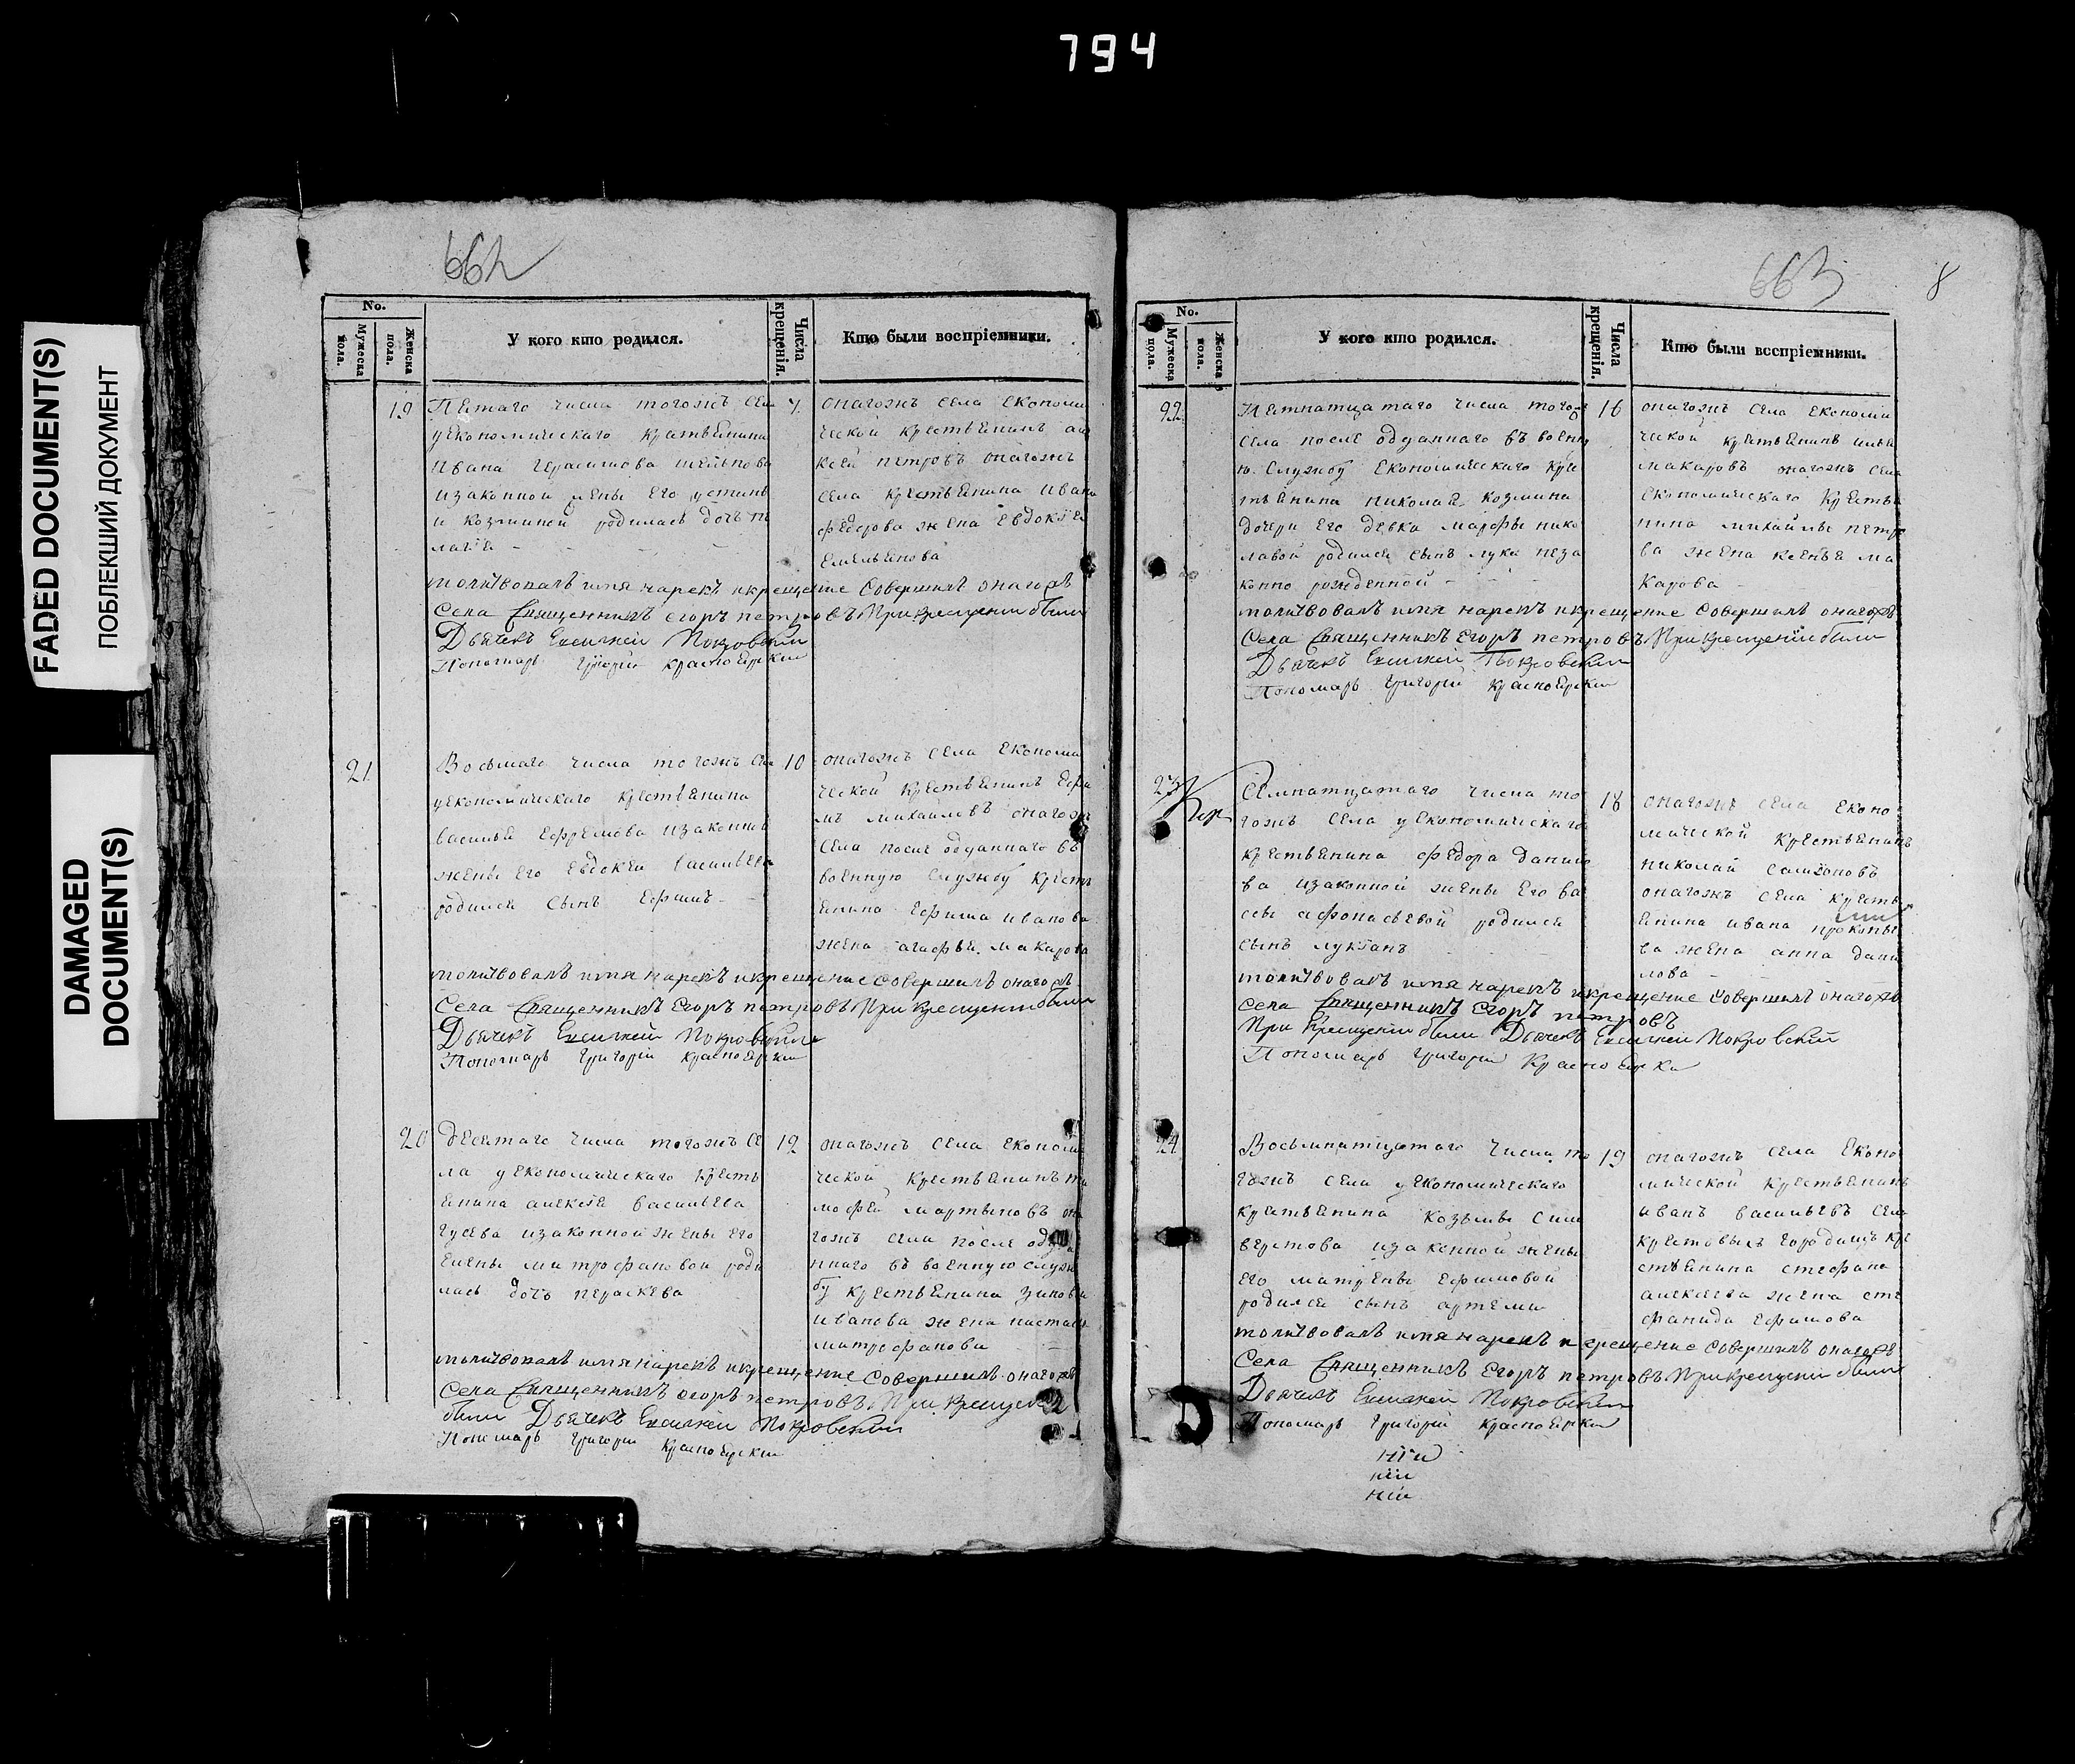 794
FADED DOCUMENT(S)
ПОБЛЕКШИЙ ДОКУМЕНТ
DAMAGED
DOCUMENT(S)
662
No.
Мужеска пола.
Женска пола.
У кого кто родился.
Числа крещенія.
Кто были воспріемники.
19
Пятаго числа тогожъ сел
уекономическаго крестьянина
Ивана Герасимова
изаконной жены его устинь
и козминой родилась дочь пе
лагія
7
онагожъ села економи
ческой крестьянинъ але
ксей петровъ онагожъ
села крестьянина ивана
федорова жена евдокія
емельянова
молитвовалъ имя нарекъ икрещение совершилъ онагожъ
села священникъ егоръ петровъ При крещении были
Дьячекъ Евсигней Покровский
Пономарь Григорий Красноярский
21
Восьмаго числа тогожъ сел
уекономическаго крестьянина
василья ефремова изаконной
жены его евдокеи васильевой
родился сынъ ефимъ
10
онагожъ села економи
ческой крестьянинъ ефи
мъ михайловъ онагожъ
села после одданнаго въ
военную службу кресть
янина ефима иванова
жена агафья макарова
молитвовалъ имя нарекъ икрещение совершилъ онагожъ
села священникъ Егоръ петровъ При крещении были
Дьячекъ Евсигней Покровский
Пономарь Григорий Красноярский
20
десятаго числа тогожъ се
ла уекономическаго кресть
янина алексея васильева
гусева изаконной жены его
елены митрофановой роди
лась дочь параскева
12
онагожъ села економи
ческой крестьянинъ ти
мофей мартыновъ она
гожъ села после одда
ннаго въ военную служ
бу крестьянина зиновья
иванова жена настасья
митрофанова
молитвовалъ имя нарекъ икрещение совершилъ онагожъ
села священникъ егоръ петровъ При крещении
были Дьячекъ Евсигней Покровский
Пономарь Григорий Красноярский
663
8
No.
Мужеска пола.
Женска пола.
У кого кто родился.
Числа крещенія.
Кто были воспріемники.
22
Пятнатцатаго числа тогож
села после одданнаго въ военну
ю службу економическаго кре
стьянина николая козмина
дочери его девка марфы нико
лавой родился сынъ лука неза
конно рожденной
16
онагожъ села економи
ческой крестьянинъ илья
макаровъ онагожъ села
економическаго крестья
нина михайлы петро
ва жена ксенья ма
карова
молитвовалъ имя нарекъ икрещение совершилъ онагожъ
села священникъ Егоръ петровъ При крещении были
Дьячекъ Евсигней Покровский
Пономарь Григорий Красноярский
23
Семнатцатаго числа то
гожъ села уекономическаго
крестьянина федора данило
ва изаконной жены его ва
сы афонасьевой родился
сынъ лукіан
18
онагожъ села еконо
мической крестьянинъ
николай
онагожъ села кресть
янина ивана прокопье
ва жена анна дани
лова
молитвовалъ имя нарекъ икрещение совершилъ онагожъ
села священникъ Егоръ петровъ
При крещении были Дьячекъ Евсигней Покровский
Пономарь Григорий Красноярский
24
Восьмнатцатаго числа то
гожъ села уекономическаго
крестьянина козьмы сили
верстова изаконной жены
его матрены ефимовой
родился сынъ артемий
19
онагожъ села еконо
мической крестьянинъ
иванъ васильевъ села
крестовыхъ городищъ кре
стьянина стефана
алексеева жена сте
фанида ефимова
молитвовалъ имя нарекъ и крещение совершилъ онагожъ
села священникъ Егоръ петровъ При крещении были
Дьячекъ Евсигней Покровский
Пономарь Григорий Красноярский
ній
ній
ній